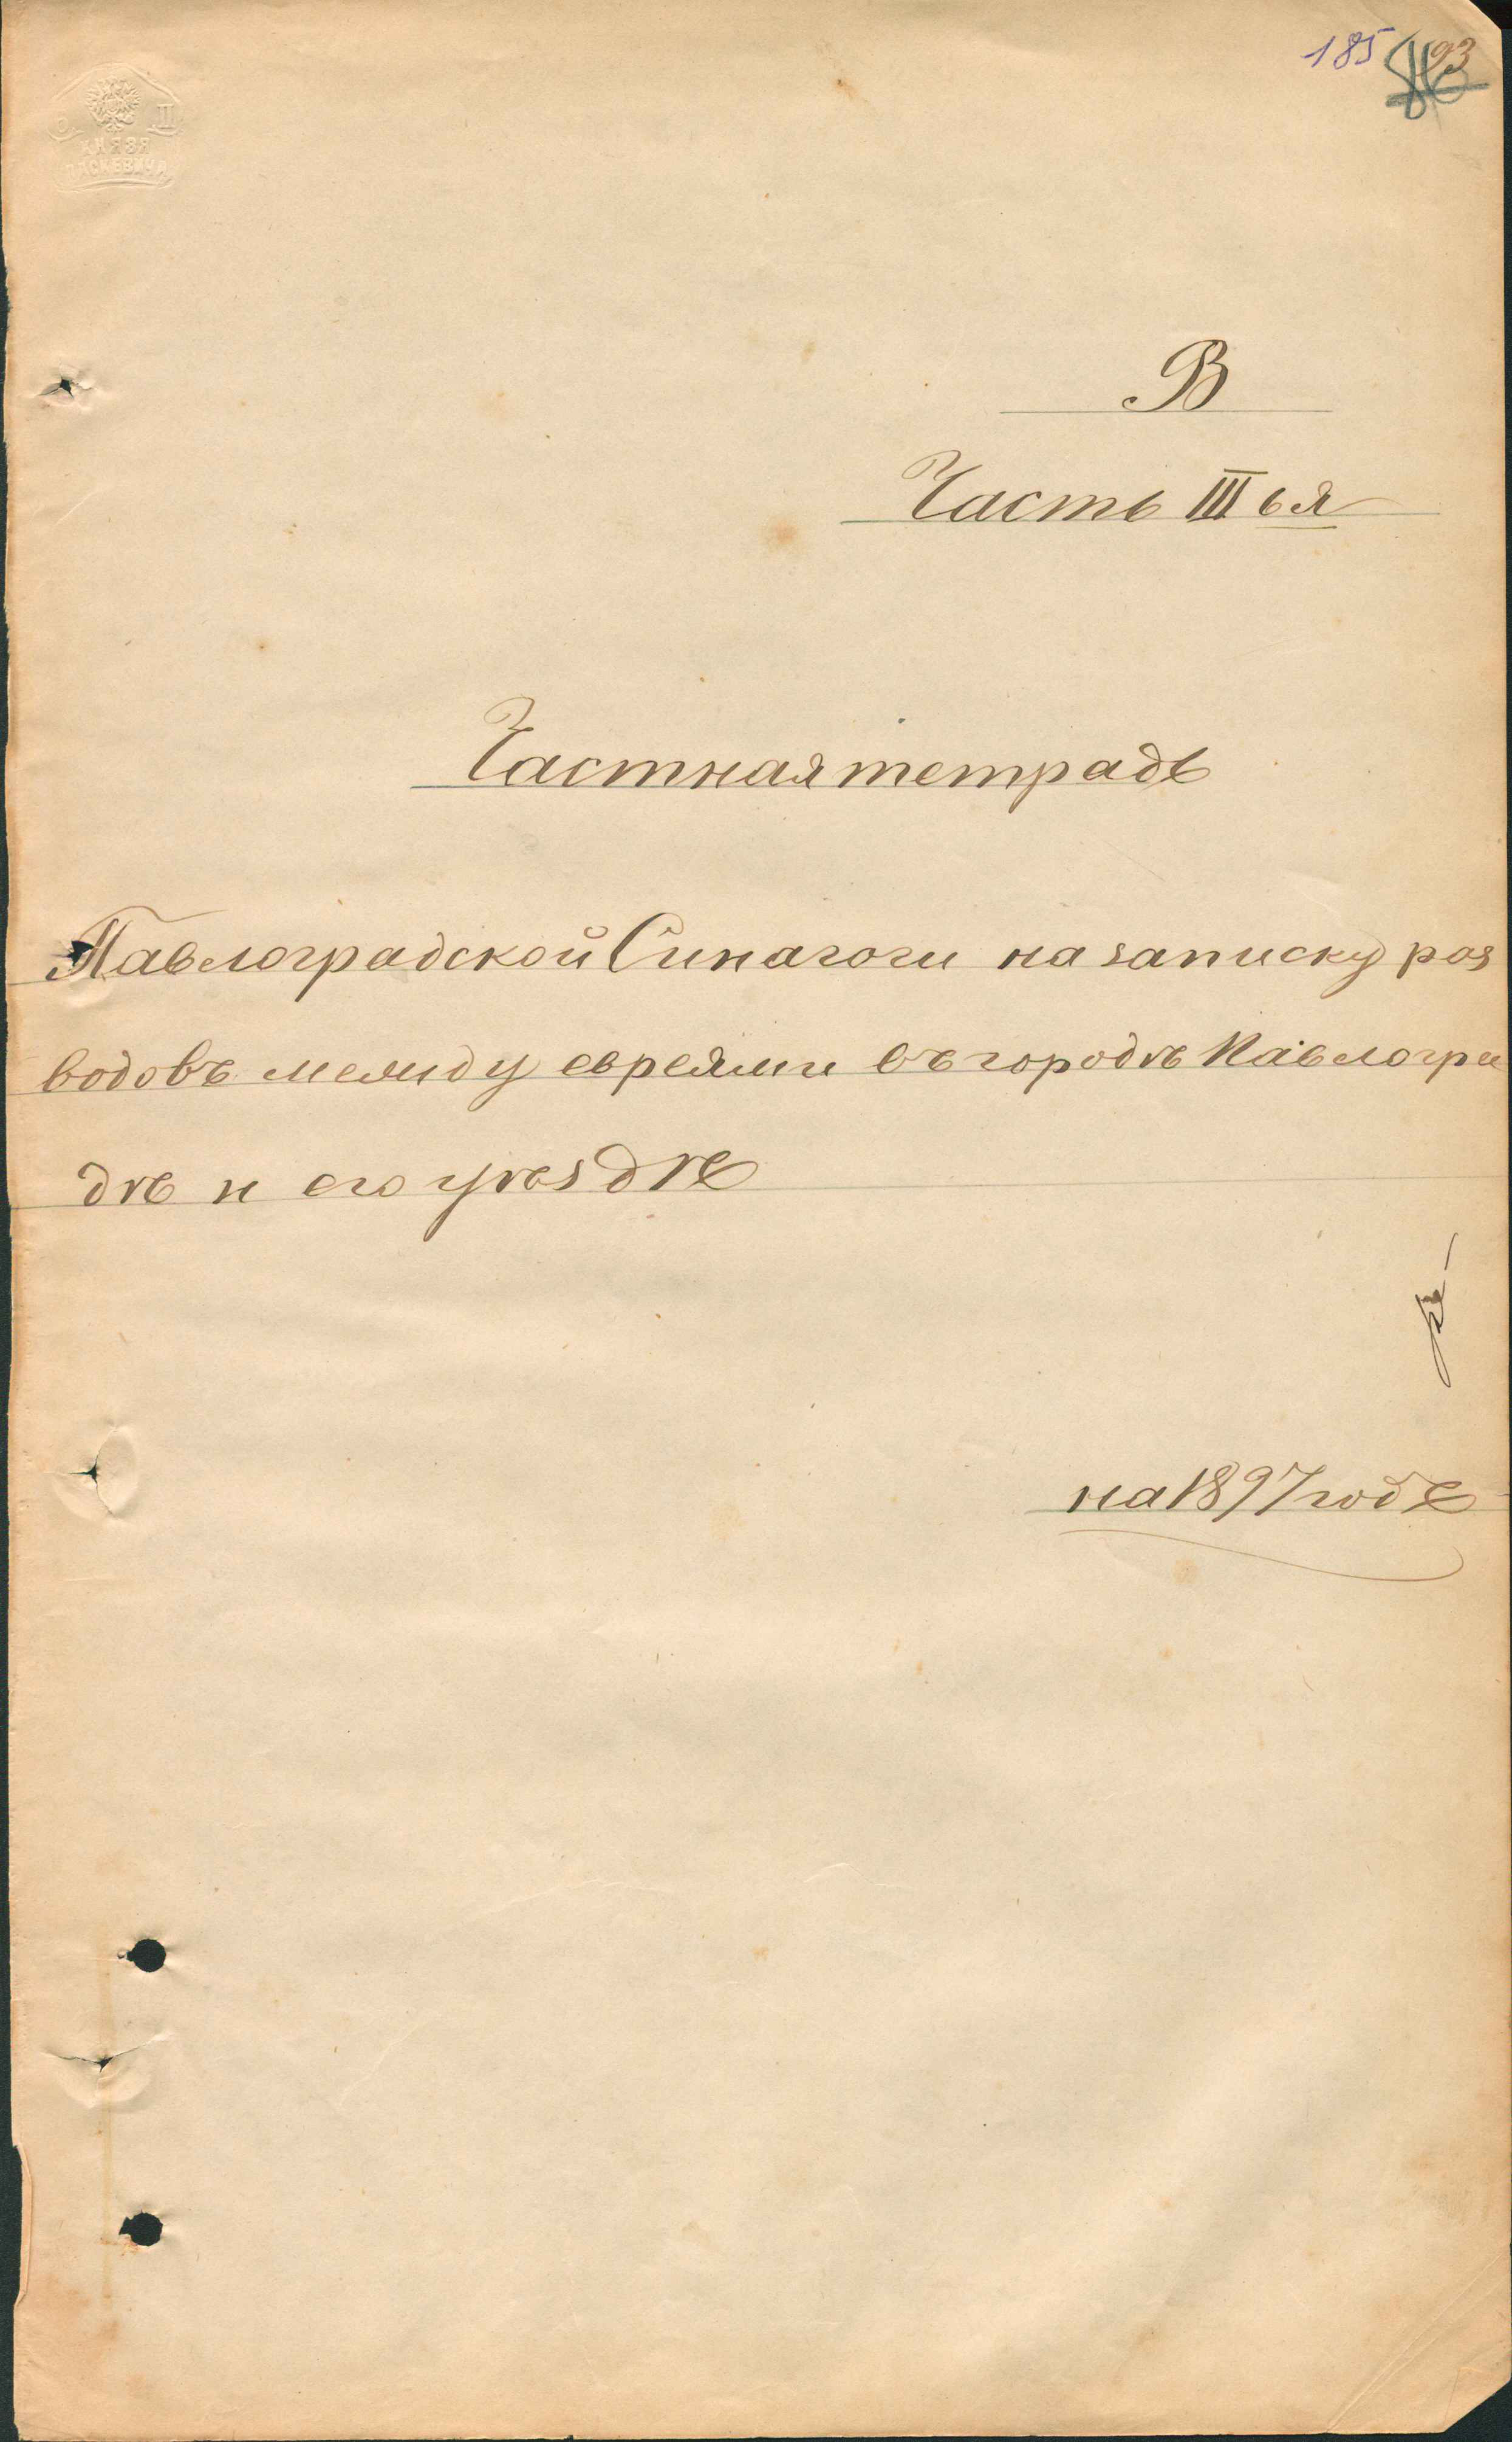 185 93
КНЯЗЯ
ПАСКЕВИЧА
В
Часть III ья
Частная тетрадь
Павлоградской Синагоги на записку роз
водовъ между евреями въ городѣ Павлогра
дѣ и его уѣздѣ
на 1897 годъ